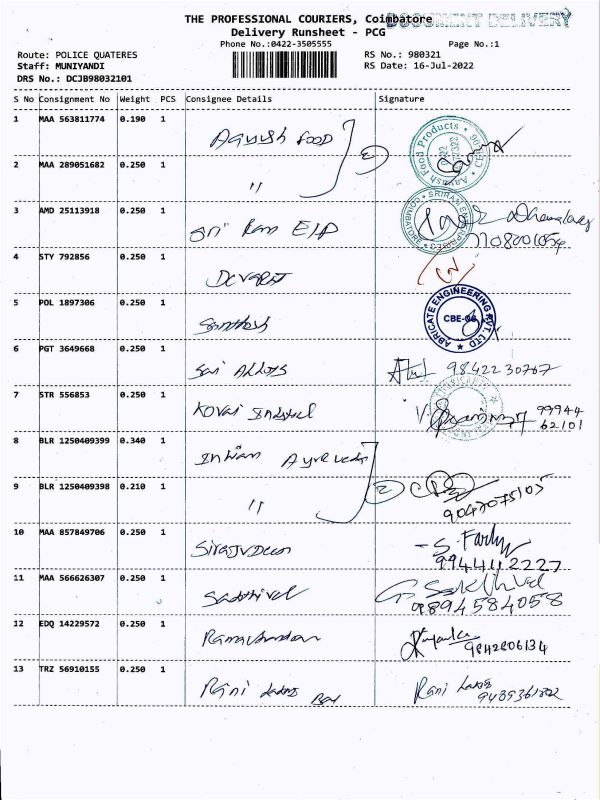 THE PROFESSIONAL COURIERS, Coimbatore
DOCUMENT DELIVERY
Delivery Runsheet - PCG
Phone No.:0422-3505555 Page No.:1
Route: POLICE QUATERES RS No.: 980321
Staff: MUNIYANDI RS Date: 16-Jul-2022
DRS No.: DCJB98032101
S No Consignment No Weight PCS Consignee Details Signature
1 MAA 563811774 0.190 1 Aayush FOOD
2 MAA 289051682 0.250 1 "
3 AMD 25113918 0.250 1 Sri Ram
4 STY 792856 0.250 1
5 POL 1897306 0.250 1 Santhosh
ABRICATE ENGINEERING PVT. LTD
CBE-06
6 PGT 3649668 0.250 1 Sai Alloys 9842230767
7 STR 556853 0.250 1 Kovai 99944
62101
8 BLR 1250409399 0.340 1 Indian Ayurveda
9 BLR 1250409398 0.210 1 " 2
10 MAA 857849706 0.250 1 Sirajudeen
9944112227
11 MAA 566626307 0.250 1 Sakthivel G. Sakthivel
9894584058
12 EDQ 14229572 0.250 1 Ramachandran
9842806134
13 TRZ 56910155 0.250 1 Rani Rani